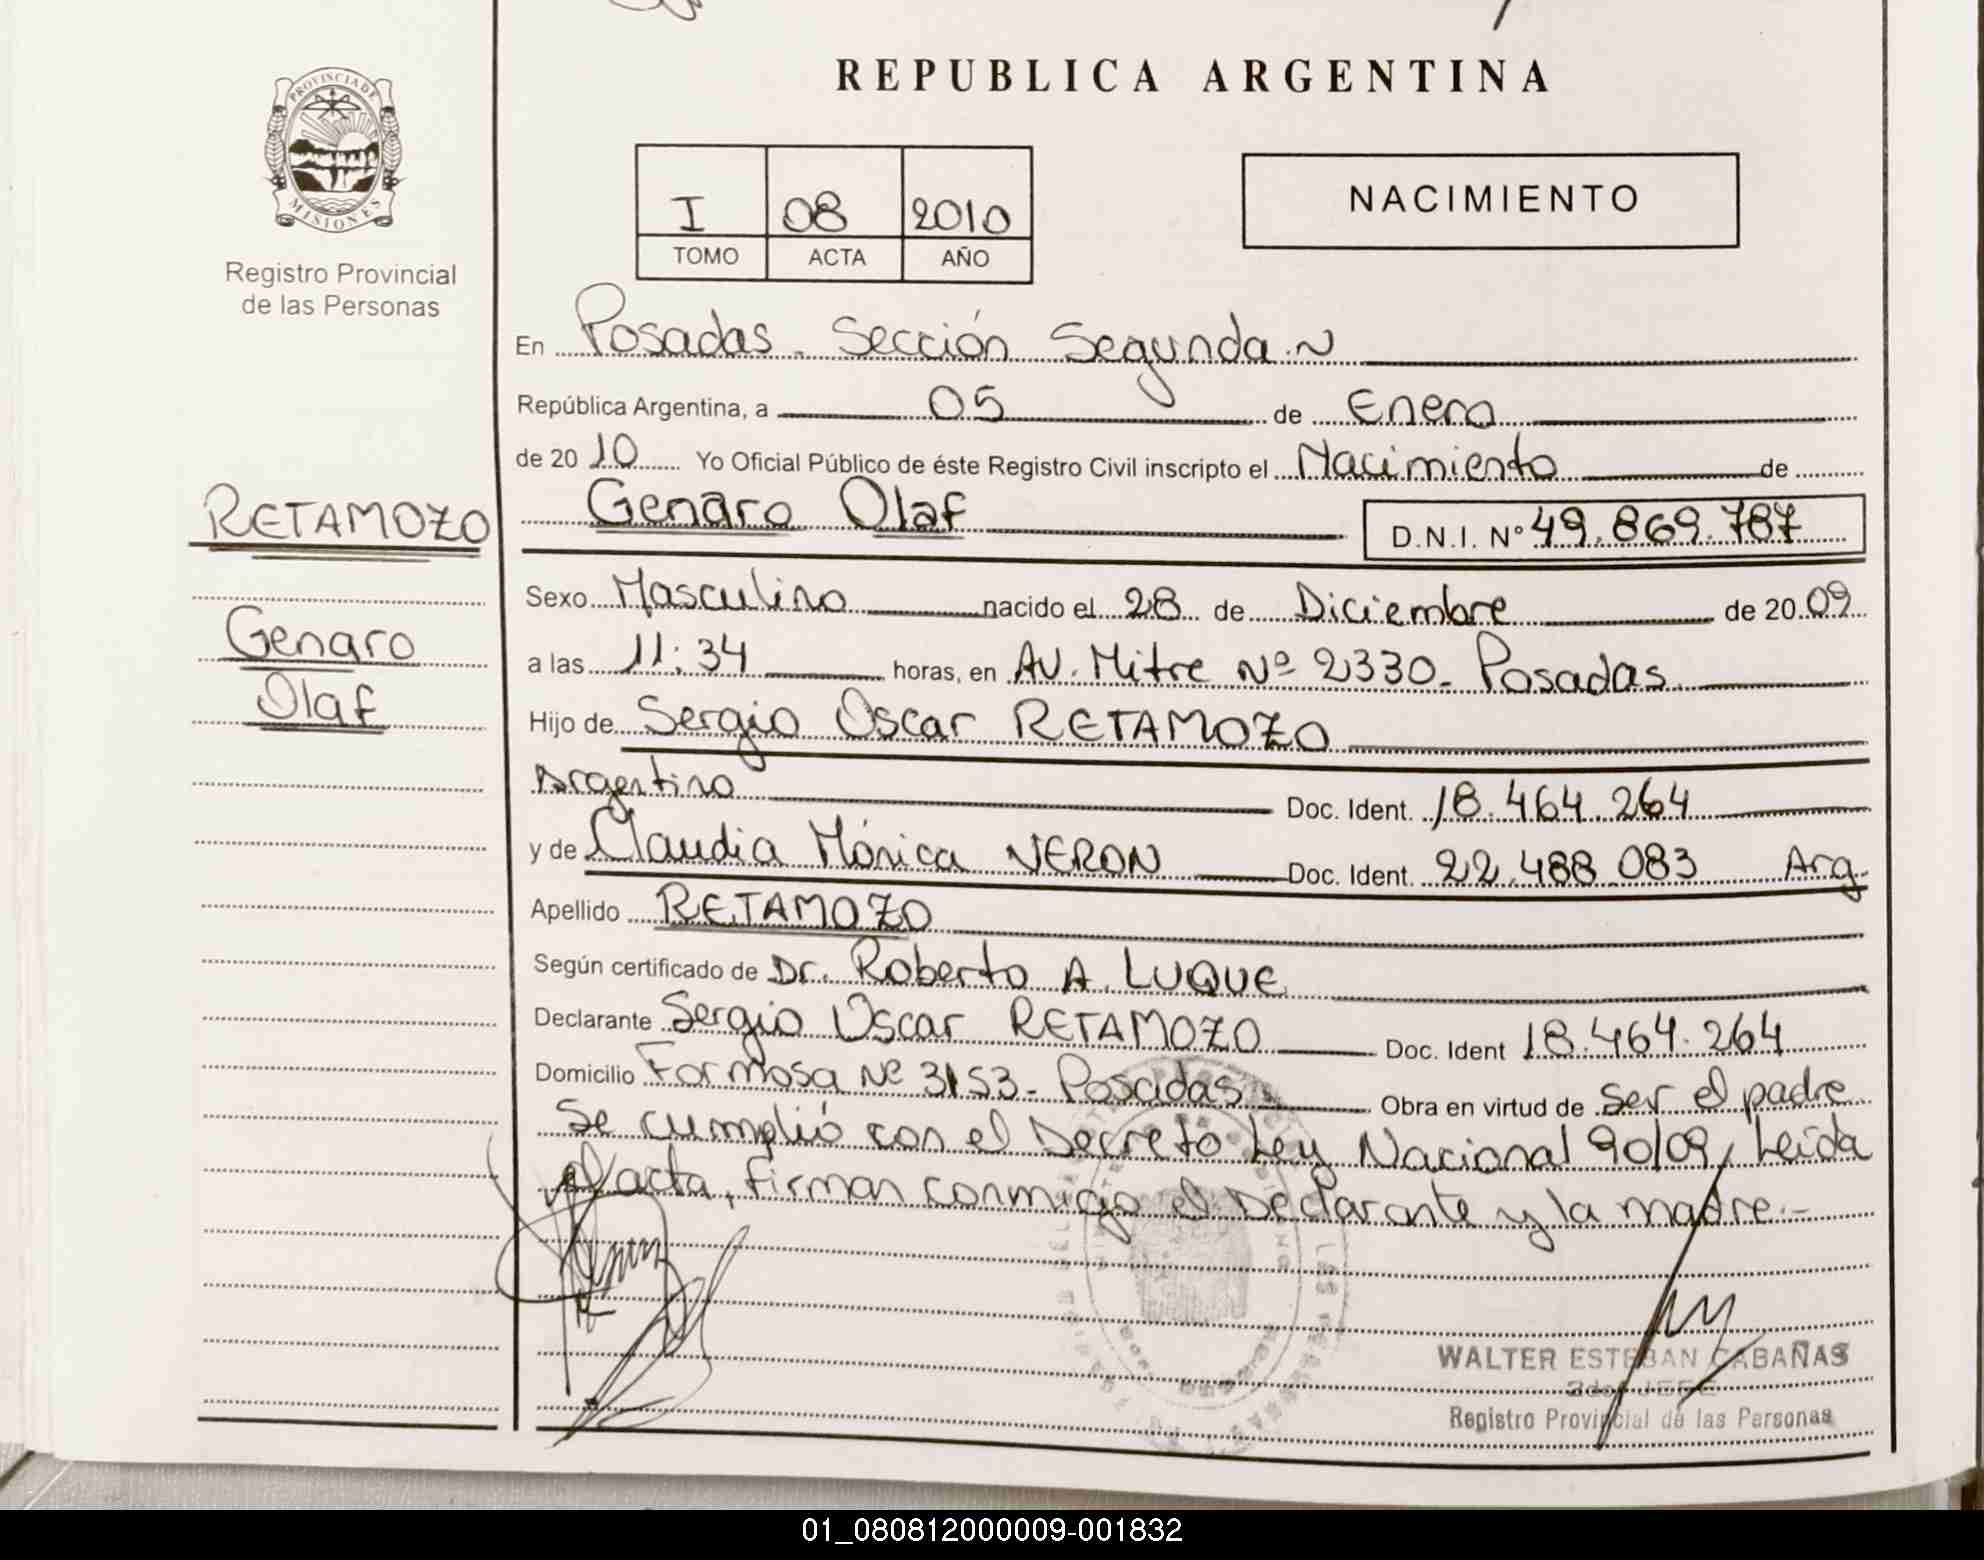 REPUBLICA ARGENTINA
PROVINCIA DE
MISIONES
Registro Provincial
de las Personas
I 08 2010
TOMO ACTA AÑO
NACIMIENTO
En Posadas. Sección Segunda.
República Argentina, a 05 de Enero
de 20 10 Yo Oficial Público de éste Registro Civil inscripto el Nacimiento de
RETAMOZO
Genaro
Olaf
Genaro Olaf D.N.I. Nº 49.869.787
Sexo Masculino nacido el 28 de Diciembre de 20 09
a las 11:34 horas, en Av. Mitre Nº 2330- Posadas.
Hijo de Sergio Oscar RETAMOZO
Argentino Doc. Ident. 18.464.264
y de Claudia Mónica NERON Doc. Ident. 22.488.083 Arg.
Apellido RETAMOZO
Según certificado de Dr. Roberto A. LUQUE
Declarante Sergio Oscar RETAMOZO Doc. Ident 18.464.264
Domicilio Formosa Nº 3153- Posadas Obra en virtud de ser el padre
Se cumplió con el Decreto Ley Nacional 90/09, Leída
el acta, firman conmigo el Declarante y la madre.-
WALTER ESTEBAN CABAÑAS
2do. JEFE
Registro Provincial de las Personas
01_080812000009-001832